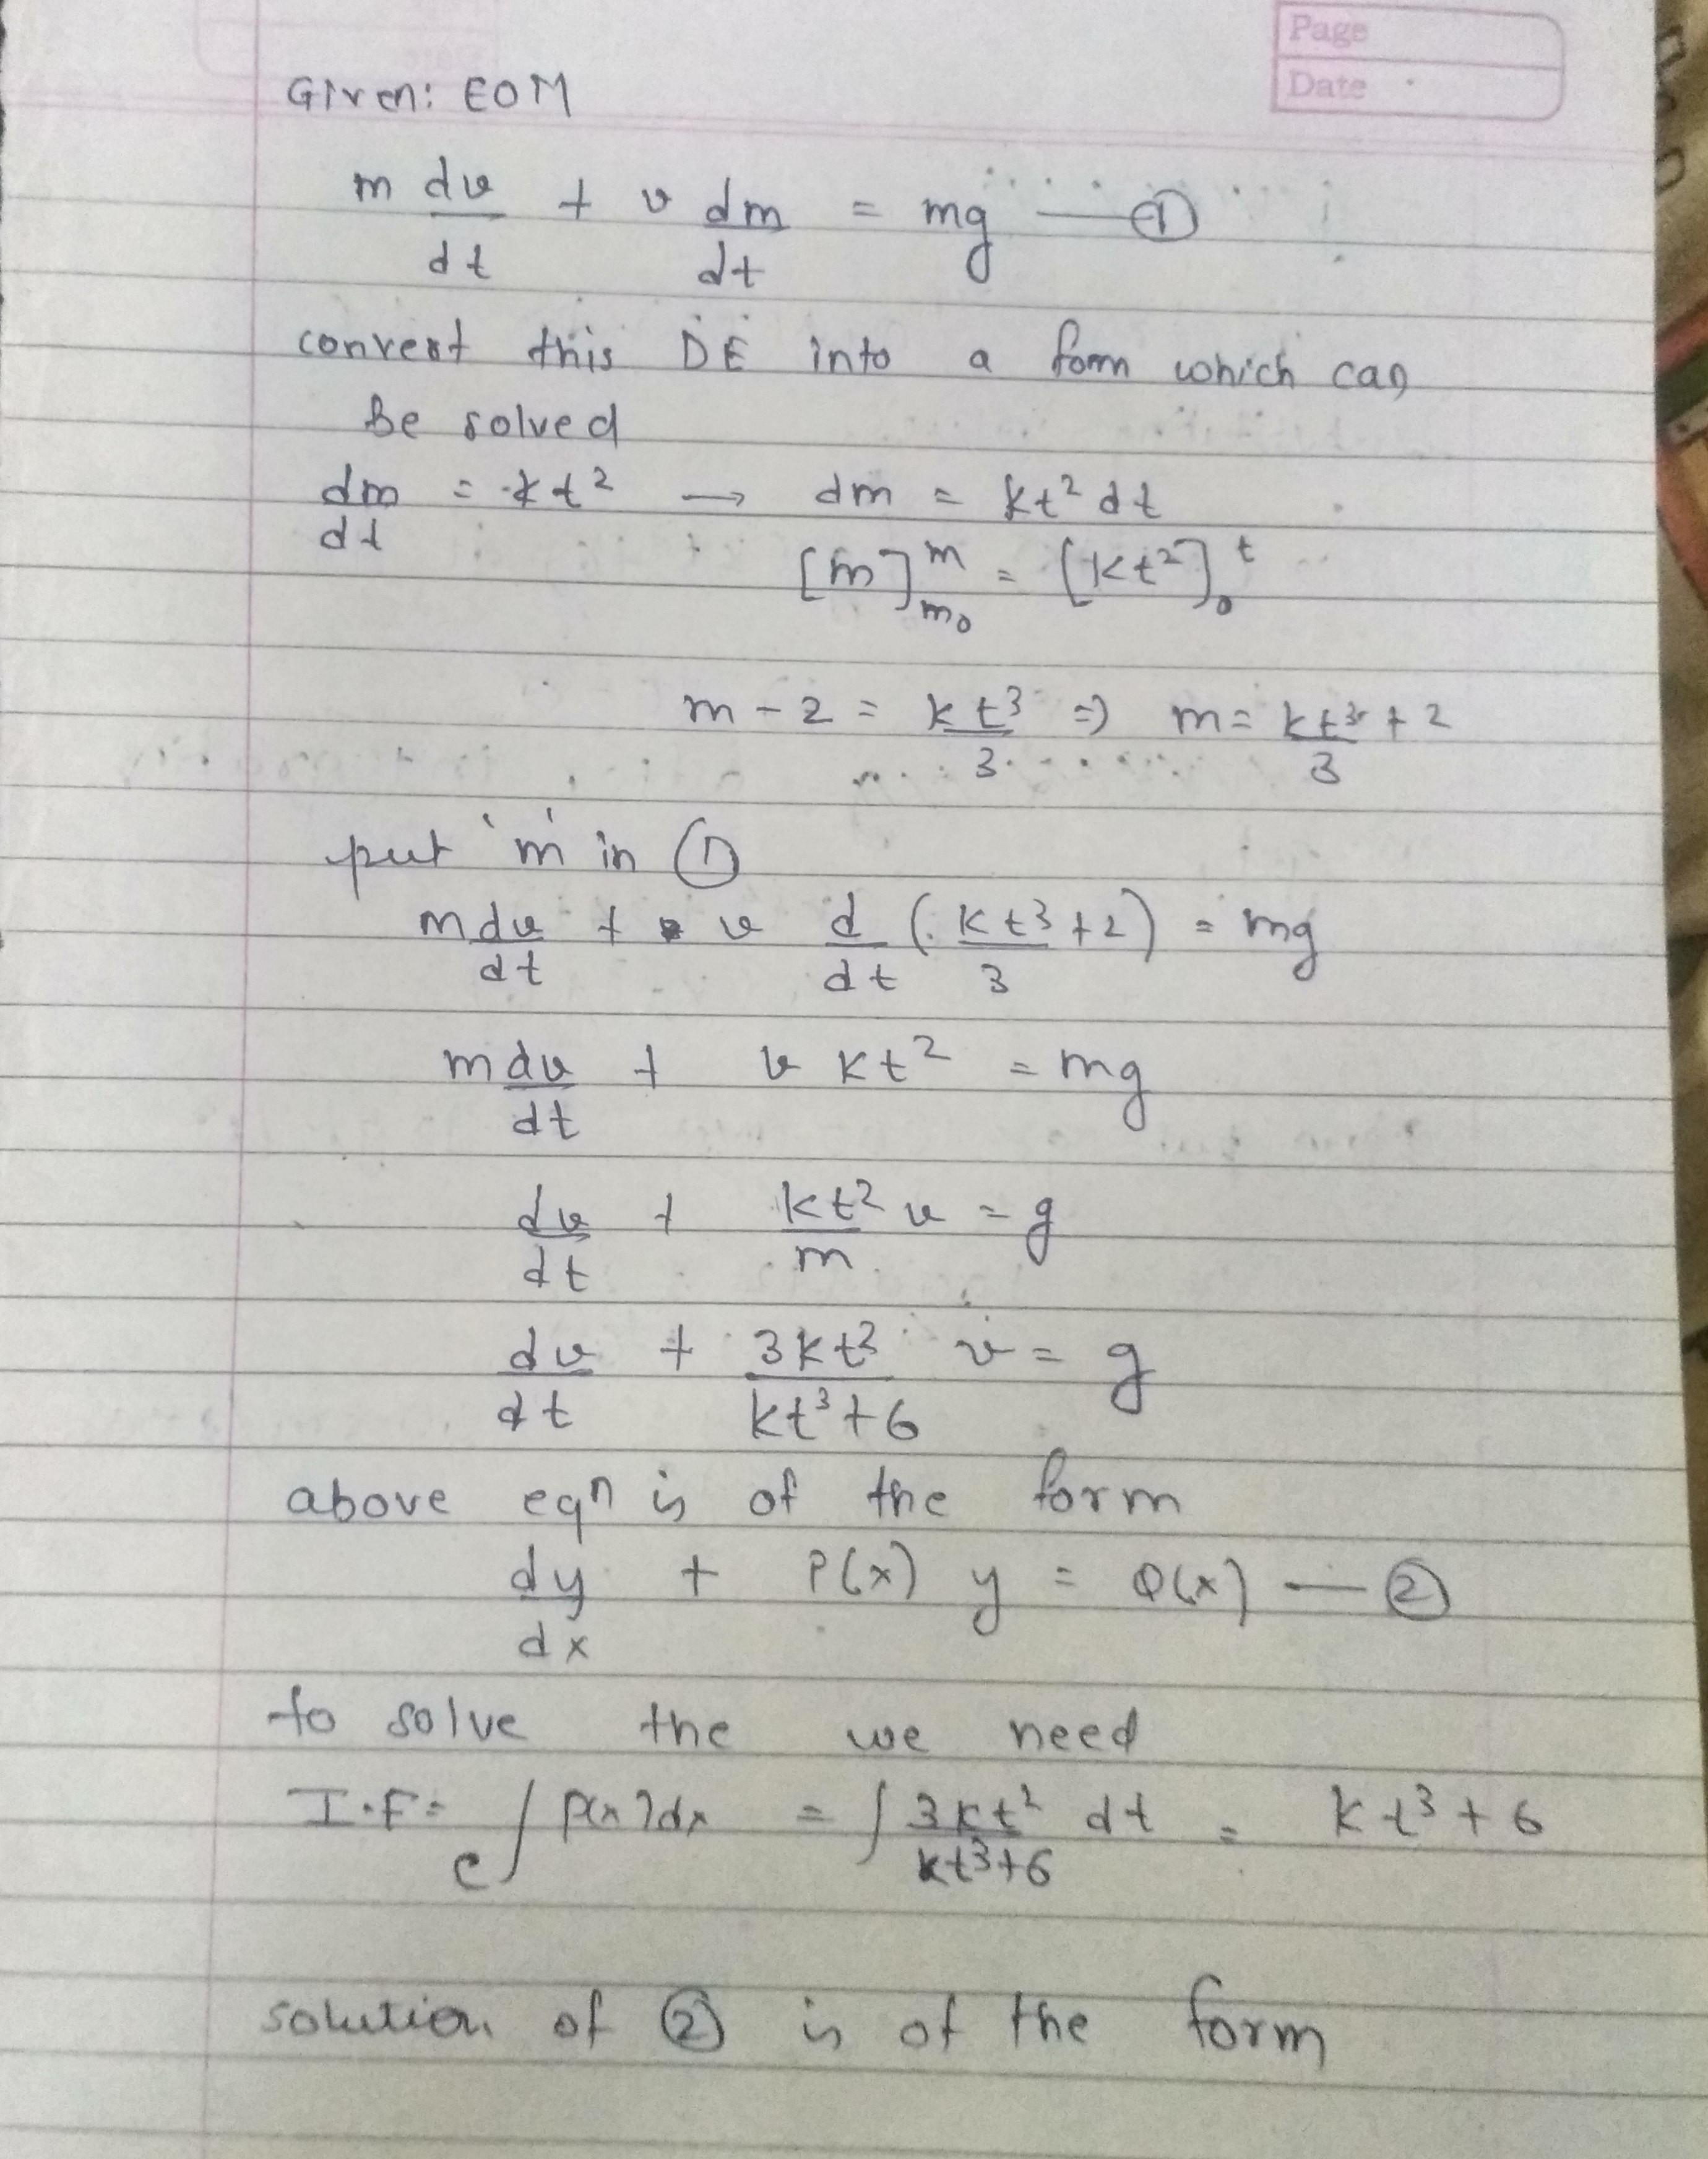 Page
Date
Given: EOM
m dv/dt + v dm/dt = mg —①
convert this DE into a form which can
be solved
dm/dt = kt² → dm = kt² dt
[m]ᵐₘ₀ = [kt²]₀ᵗ
m - 2 = kt³/3 ⇒ m = kt³/3 + 2
put 'm' in ①
m dv/dt + v d/dt (kt³/3 + 2) = mg
m dv/dt + v kt² = mg
dv/dt + kt²/m v = g
dv/dt + 3kt²/kt³+6 v = g
above eqⁿ is of the form
dy/dx + P(x) y = Q(x) —②
to solve the we need
I.F = e ∫ P(x)dx = ∫ 3kt²/kt³+6 dt = kt³+6
solution of ② is of the form